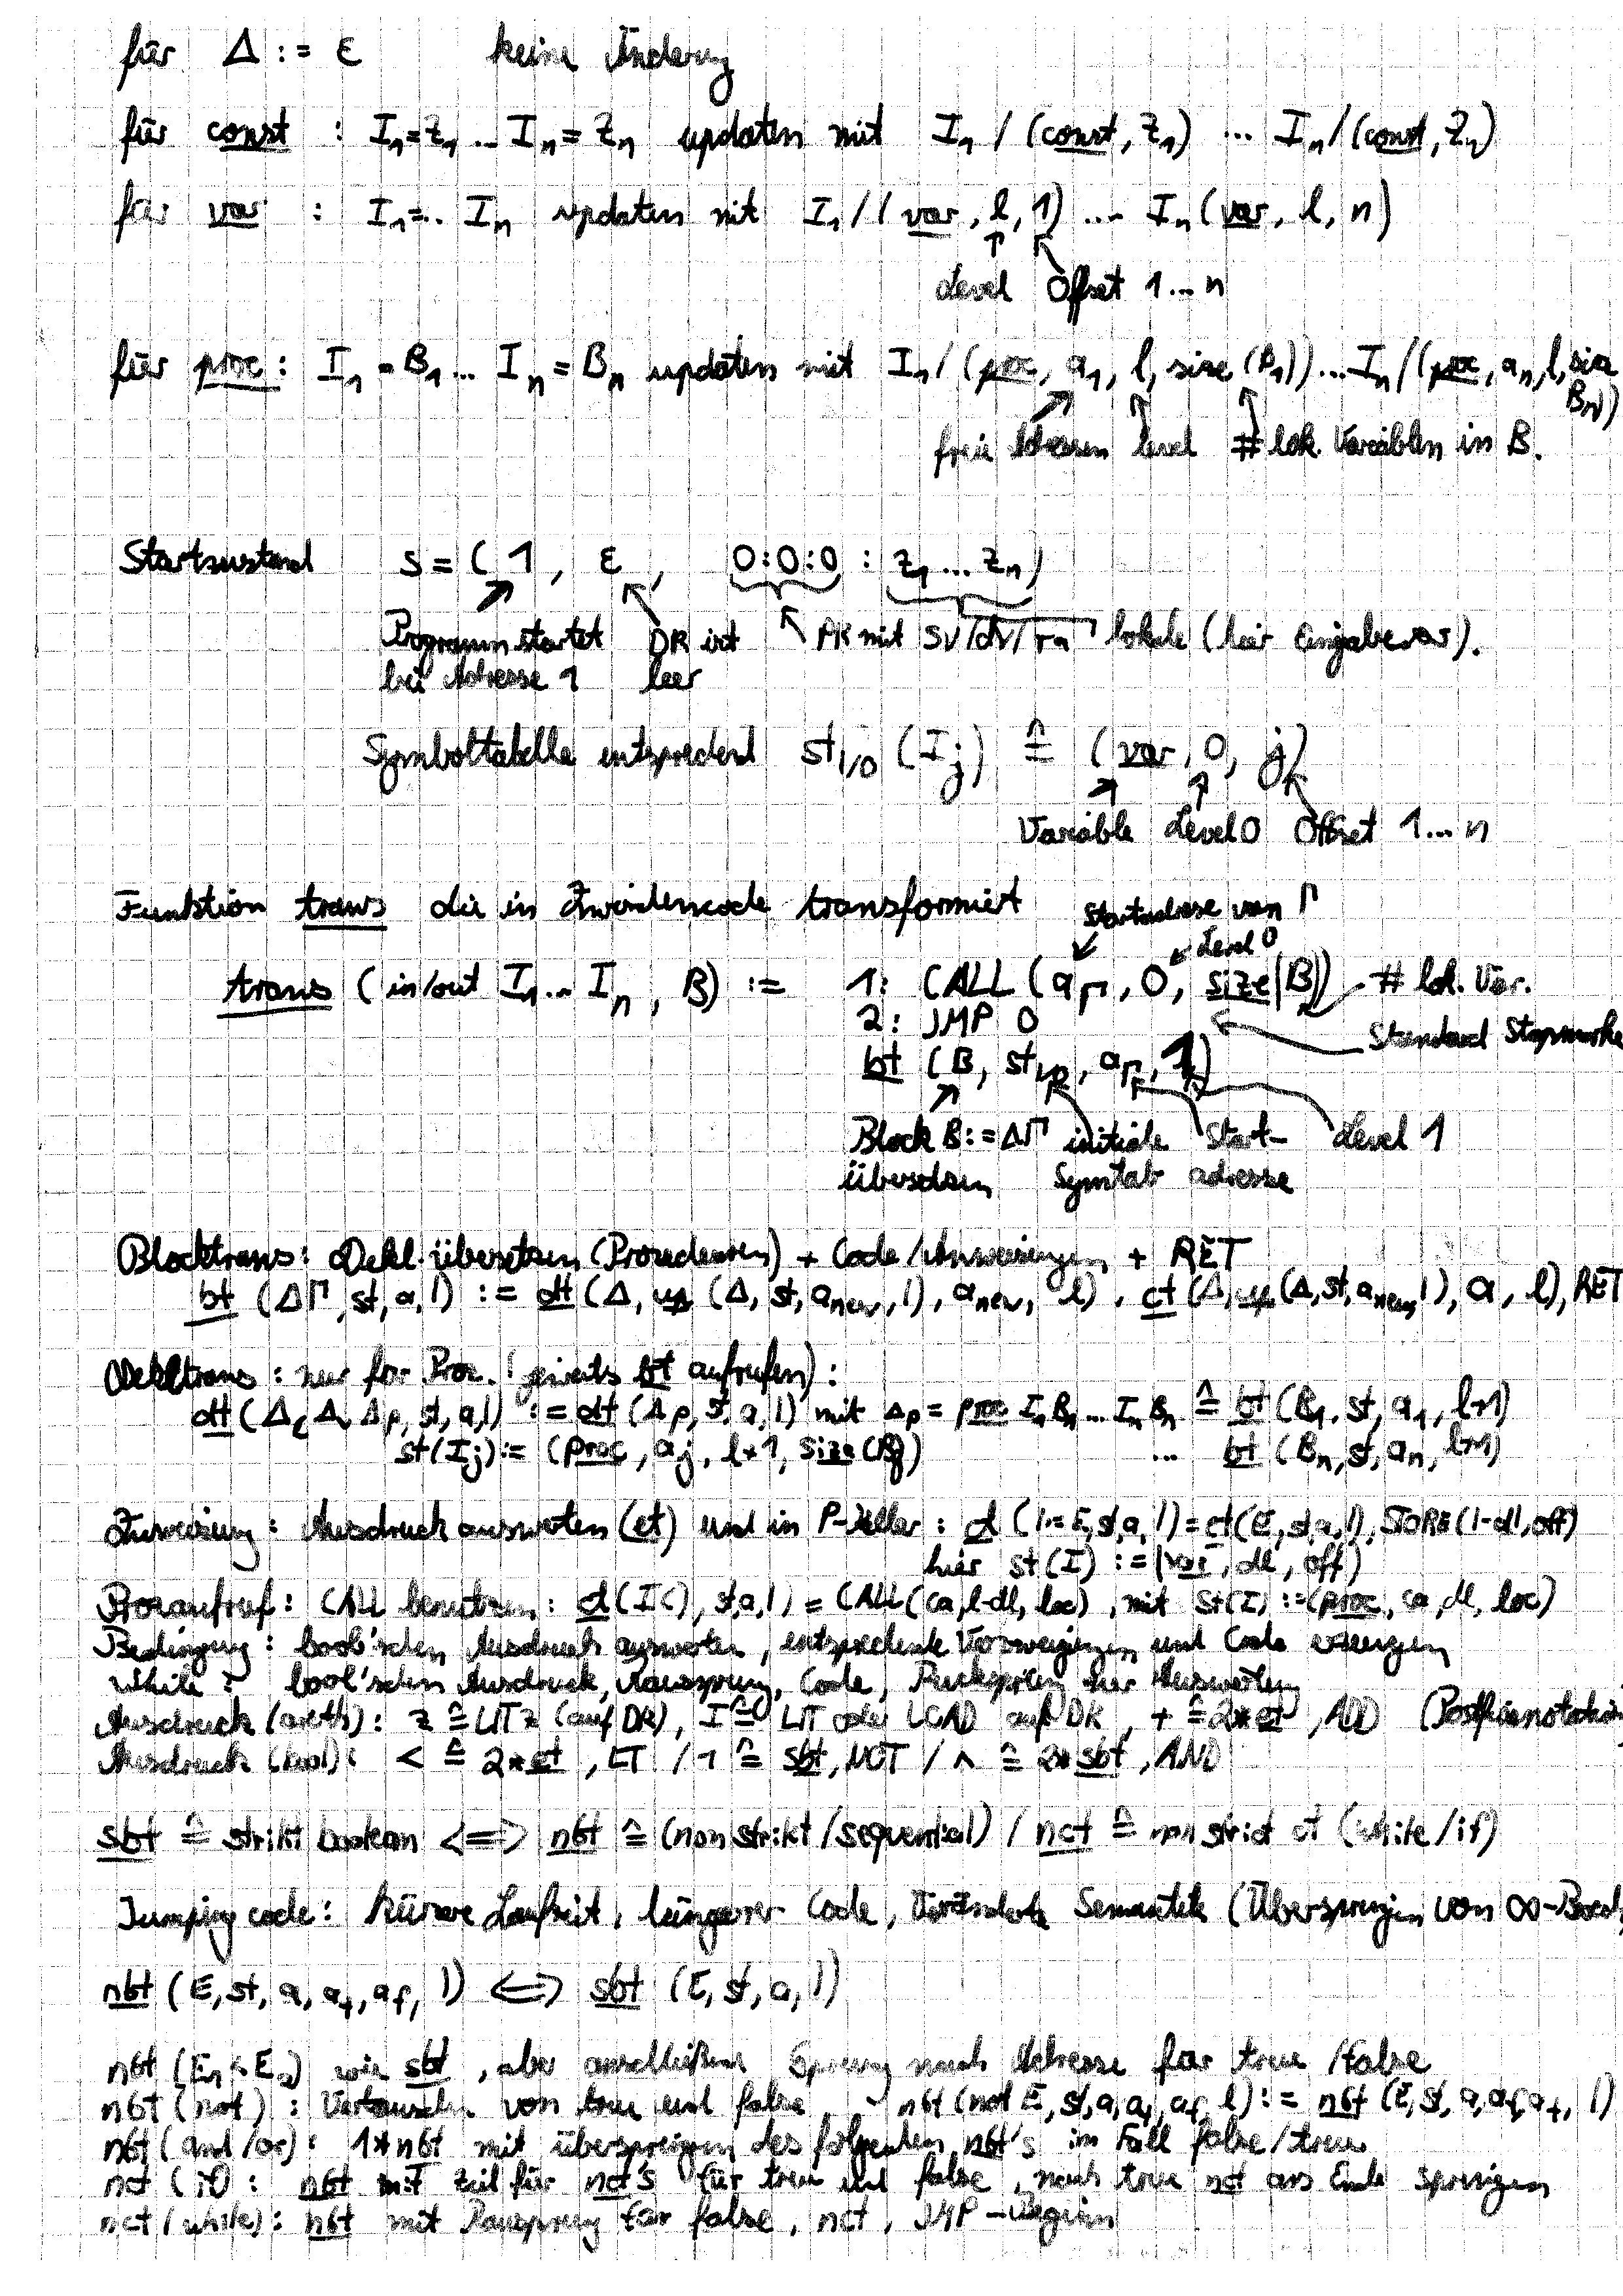 für Δ := ε keine Änderung
für const : I₁=z₁ ... Iₙ=zₙ updaten mit I₁/(const, z₁) ... Iₙ/(const, zₙ)
für var : I₁=.. Iₙ updaten mit I₁/(var, l, 1) ... Iₙ(var, l, n)
Level Offset 1...n
für proc : I₁=B₁... Iₙ=Bₙ updaten mit I₁/(proc, a₁, l, size(B₁))...Iₙ/(proc, aₙ, l, size
Bₙ))
freie Adressen level # lok. Variablen in B.
Startzustand s = (1, ε, 0:0:0 : z₁ ... zₙ)
Programm startet DK ist PK mit sv/dv/ra lokale (hier Eingabevar).
bei Adresse 1 leer
Symboltabelle entsprechend st_I/O (I_j) ≙ (var, 0, j)
Variable Level 0 Offset 1...n
Funktion trans die in Zwischencode transformiert Startadresse von Γ
Level 0
trans (in/out I₁...Iₙ, B) := 1: CALL (a_Γ, 0, size(B)) # lok. Var.
2: JMP 0 Standard Stopmarke
bt (B, st_I/O, a_Γ, 1)
Block B:=ΔΓ initiale Start- Level 1
übersetzen Symtab adresse
Blocktrans: Dekl. übersetzen (Prozeduren) + Code/Anweisungen + RET
bt (ΔΓ, st, a, l) := dt (Δ, up (Δ, st, a_new, l), a_new, l), ct (Δ, up (Δ, st, a_new, l), a, l), RET
Dekltrans: nur für Proc. (jeweils bt aufrufen):
dt (Δ_c Δ_v Δ_p, st, a, l) := dt (Δ_p, st, a, l) mit Δ_p = proc I₁B₁...IₙBₙ ≙ bt (B₁, st, a₁, l+1)
st(I_j) := (proc, a_j, l+1, size(B_j)) ... bt (Bₙ, st, aₙ, l+1)
Zuweisung: Ausdruck auswerten (et) und in P-Keller: ct (I:=E, st, a, l) = et(E, st, a, l), STORE(l-dl, off)
hier st(I) := (var, dl, off)
Prozaufruf: CALL benutzen: ct(I(), st, a, l) = CALL(ca, l-dl, loc), mit st(I) := (proc, ca, dl, loc)
Bedingung: bool'schen Ausdruck auswerten, entsprechende Verzweigungen und Code erzeugen
while: bool'schen Ausdruck, Raussprung, Code, Rücksprung hier Auswerten
Ausdruck (arith): z ≙ LIT z (auf DK), I ≙ LIT oder LOAD auf DK, + ≙ 2*et, ADD (Postfixnotation
Ausdruck (bool): < ≙ 2*et, LT / ¬ ≙ sbt, NOT / ∧ ≙ 2*sbt, AND
sbt ≙ strikt boolean <=> nbt ≙ (non strikt/sequentiell) / nct ≙ non strict ct (while/if)
Jumping code: kürzere Laufzeit, längerer Code, Veränderte Semantik (Überspringen von ∞-Berech
nbt (E, st, a, a_t, a_f, l) <=> sbt (E, st, a, l)
nbt (E₁<E₂) wie sbt, aber anschließend Sprung nach Adresse für true/false
nbt (not): Vertauschen von true und false nbt (not E, st, a, a_t, a_f, l) := nbt (E, st, a, a_f, a_t, l)
nbt (and/or): 1*nbt mit überspringen des folgenden nbt's im Fall false/true
nct (if): nbt mit Ziel für nct's für true und false, nach true nct ans Ende springen
nct (while): nbt mit Raussprung für false, nct, JMP-Beginn